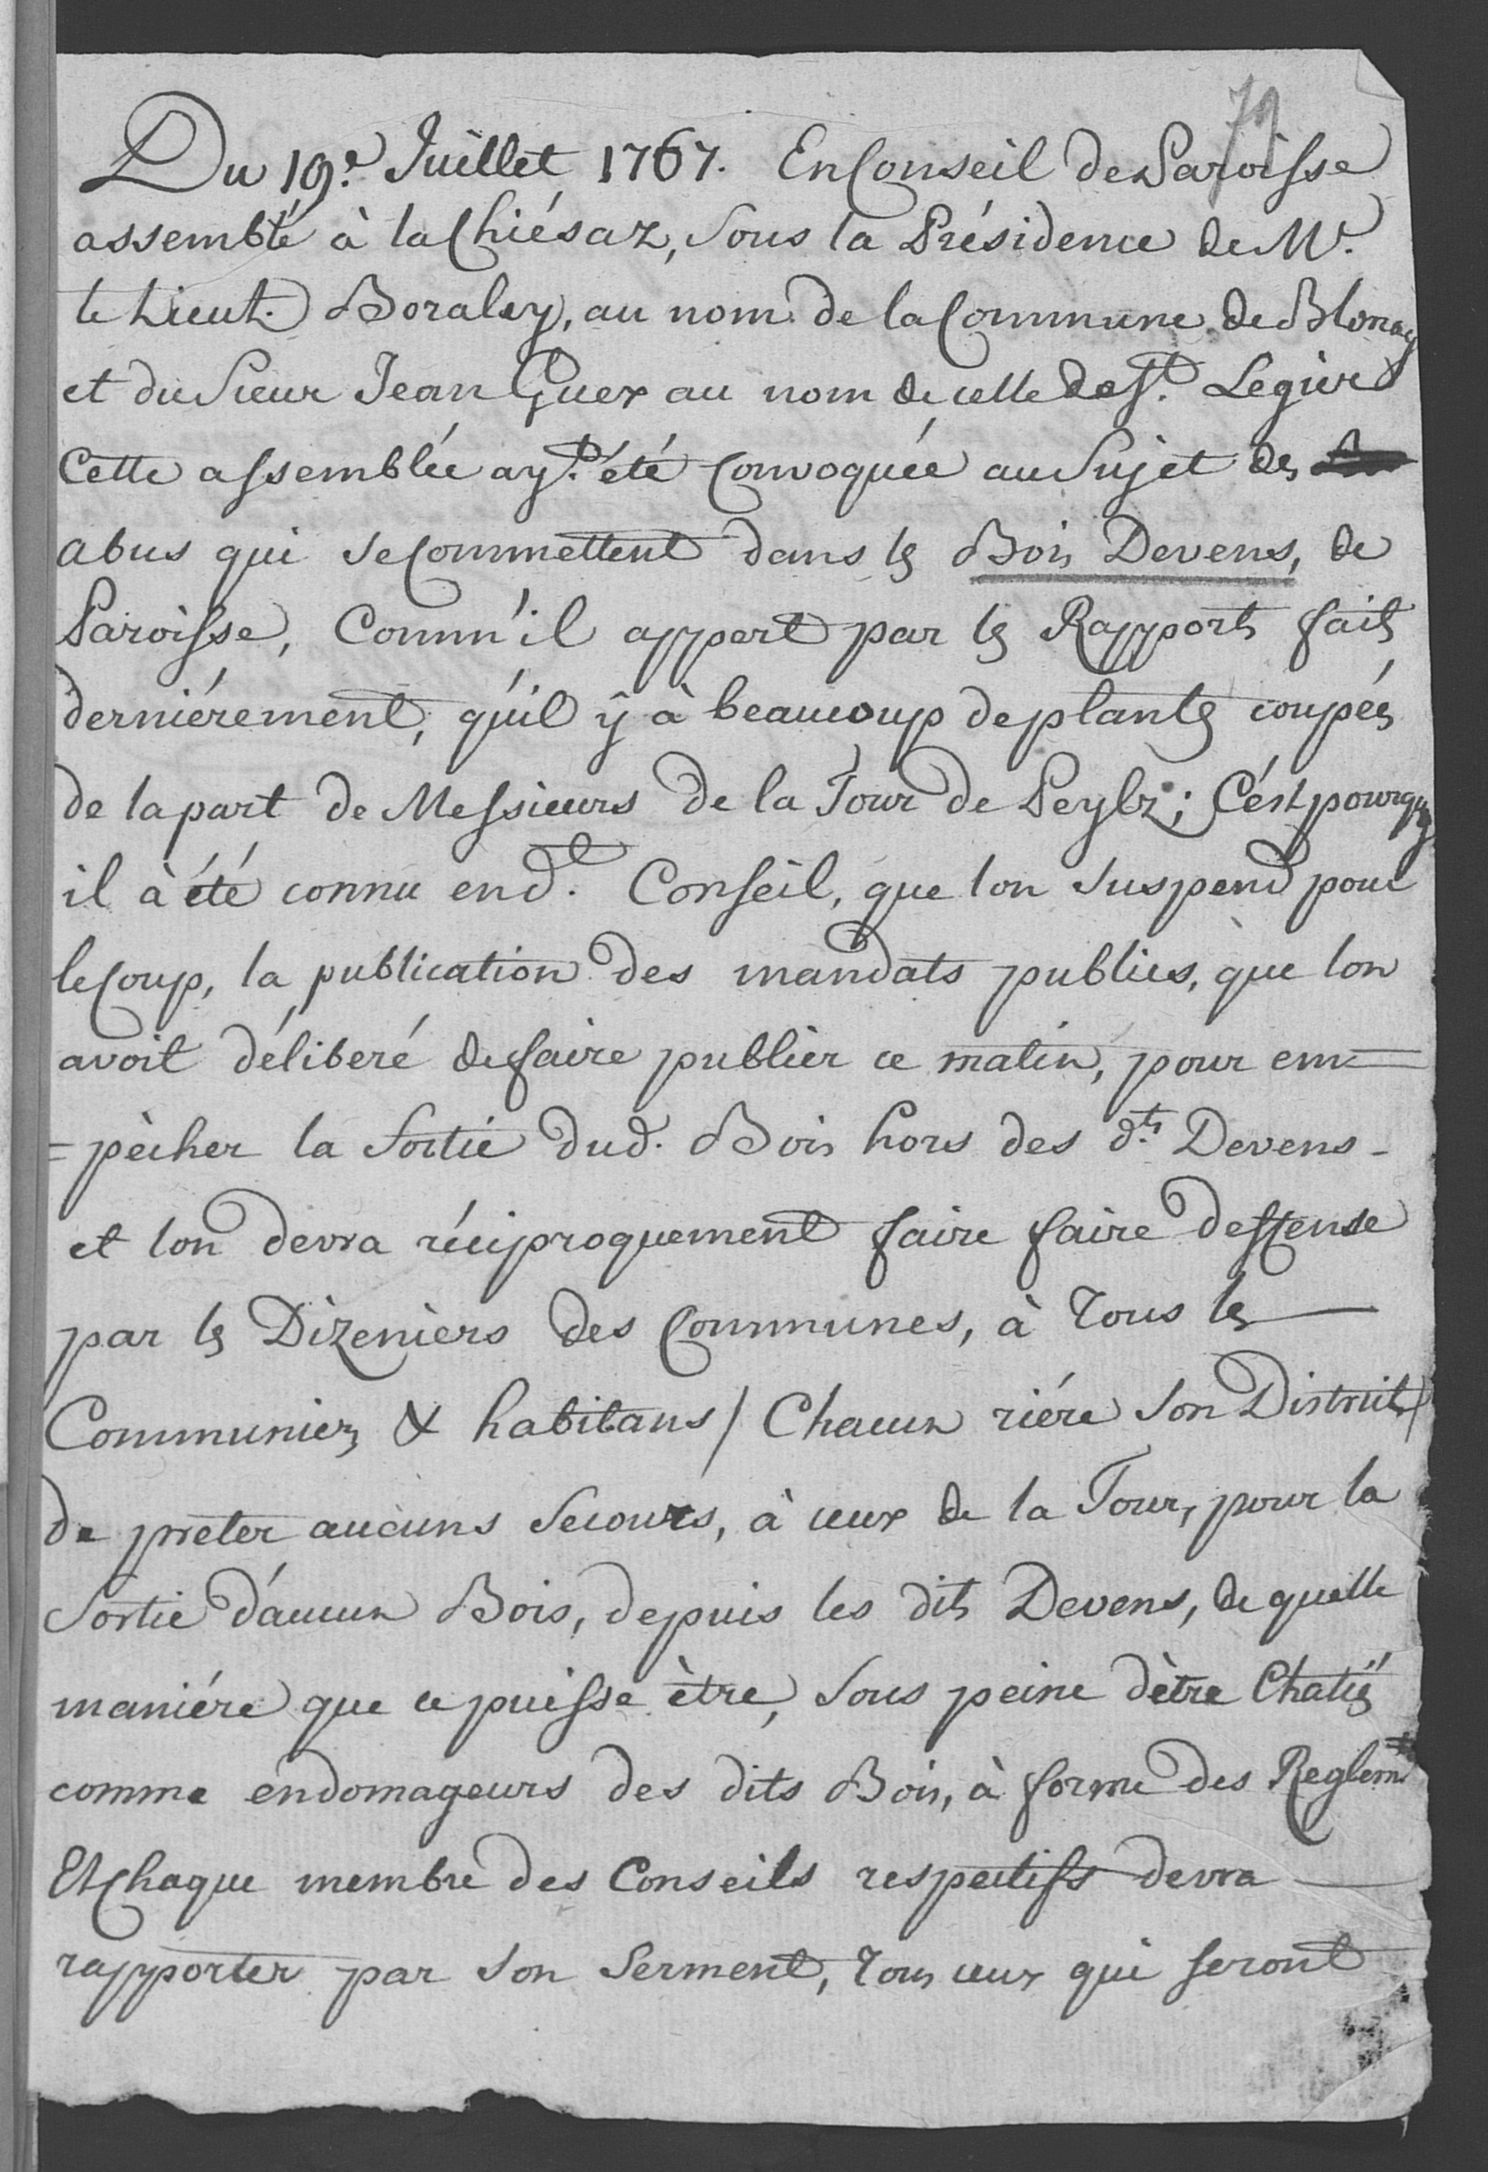 79
Du 19.e Juillet 1767. En Conseil de Paroisse
assemblé à la Chiésaz, sous la Présidence de Mr.
le Lieut. Boraley, au nom de la Commune de Blonay
et du Sieur Jean Guex au nom de celle de St. Legier
Cette assemblée ayt. été Convoquée au Sujet des
abus qui se Commettent dans les Bois Devens, de
Paroisse, Comm'il appert par les Rapports faits
derniérement, qu'il ÿ à beaucoup de plantes coupées
de la part de Messieurs de la Tour de Peylz; C'ést pourquoy
il à été connu end.t Conseil, que lon suspend pour
le Coup, la publication des mandats publics, que lon
avoit délibéré de faire publier ce matin, pour em=
=pècher la Sortie dud. Bois hors des d.ts Devens -
et lon devra réciproquement faire faire deffense
par les Dizeniers des Communes, à Tous les
Communiers & habitans / Chacun riére son District /
de prèter aucuns Secours, à ceux de la Tour, pour la
Sortie d'aucun Bois, depuis les dits Devens, de quelle
maniére que ce puisse ètre, sous peine d'ètre Chatiés
comme endomageurs des dits Bois, à forme des Reglemts
Et Chaque membre des Conseils respectifs devra
rapporter par son Serment, Tous ceux qui seront